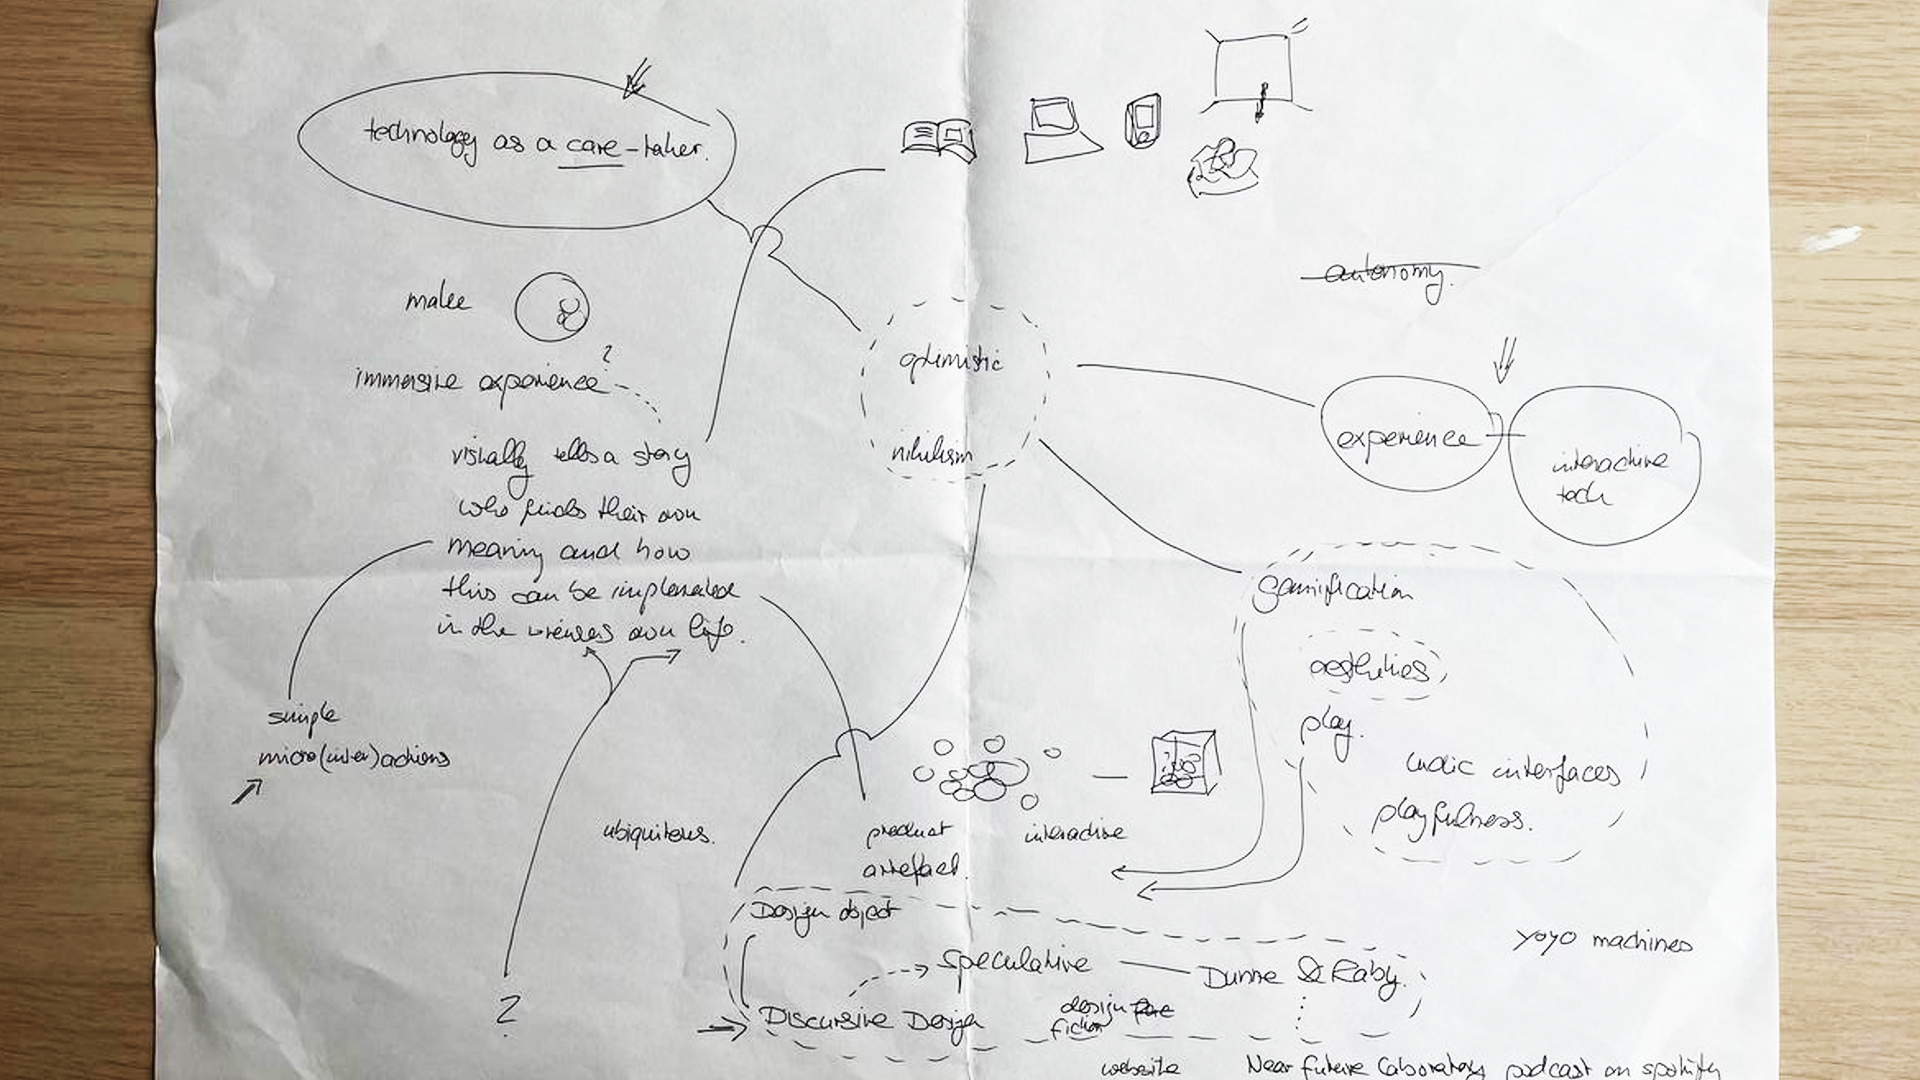 technology as a care-taker.
autonomy.
make
immersive experience ?
optimistic
nihilism
experience
interactive
tech
visually tells a story
who finds their own
meaning and how
this can be
in the viewers own life.
gamification
aesthetics
play.
ludic interfaces
playfulness.
simple
micro(inter)actions
ubiquitous.
product
artefact.
interactive
Design object
yoyo machines
Speculative
Dunne & Raby.
Discursive Design
design
fiction
?
website
Near future laboratory podcast on spotify